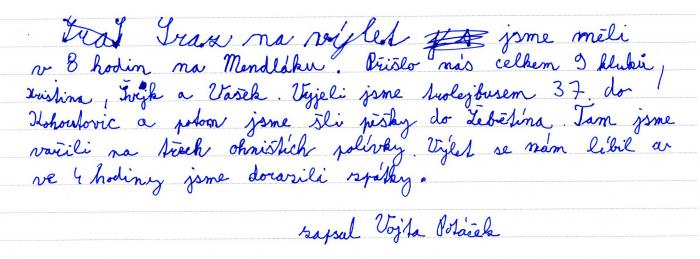 Sraz na výlet jsme měli
v 8 hodin na Mendláku. Přišlo nás celkem 9 kluků,
Kristina, Švejk a Vašek. Vyjeli jsme trolejbusem 37. do
Kohoutovic a potom jsme šli pěšky do Žebětína. Tam jsme
vařili na třech ohništích polívky. Výlet se nám líbil a
ve 4 hodiny jsme dorazili zpátky.
zapsal Vojta Potáček